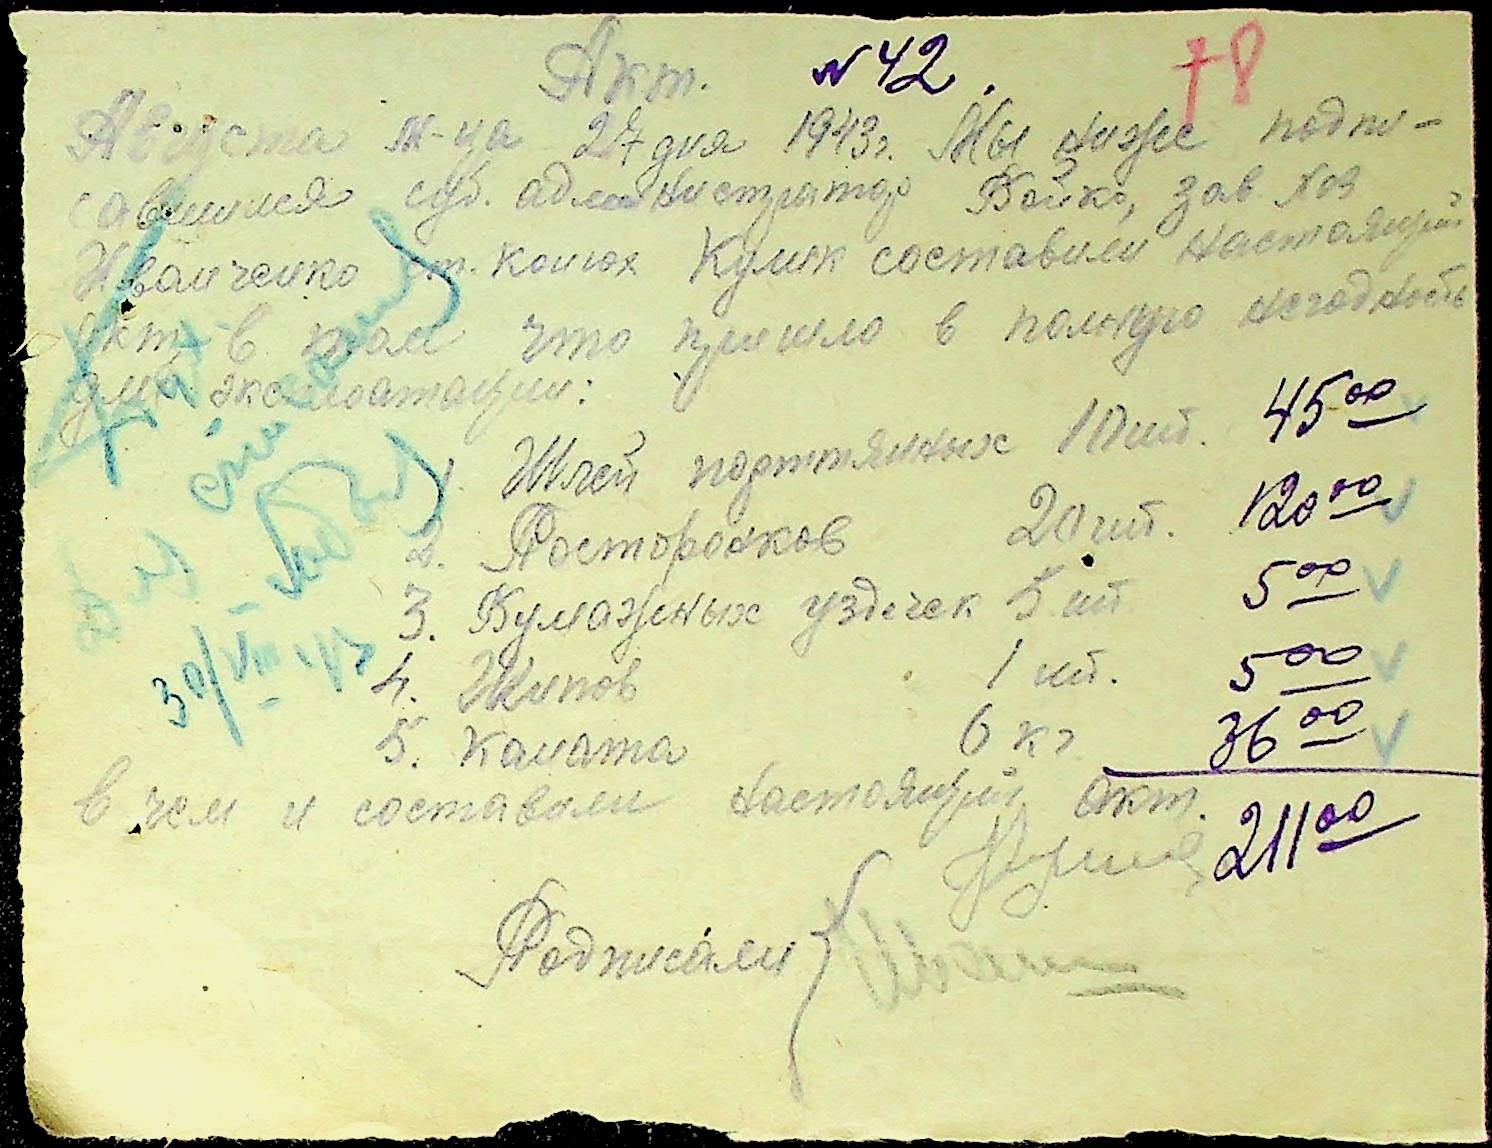 Акт. № 42.
78
Августа м-ца 27 дня 1943 г. Мы ниже подпи-
савшиеся суб. администратор Бойко, зав. хоз
Иванченко ст. конюх Кулик составили настоящий
акт в том что пришло в полную негодность
для эксплоатации:
1. Шлей портянных 10 шт. 45 00
2. Посторонков 20 шт. 120 00
3. Бумажных уздечек 5 шт. 5 00
4. Жупов 1 шт. 5 00
5. Каната 6 кг 36 00
В чем и составили настоящий акт.
211 00
Подписали
30/VIII-43